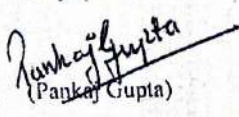 Pankaj Gupta
(Pankaj Gupta)